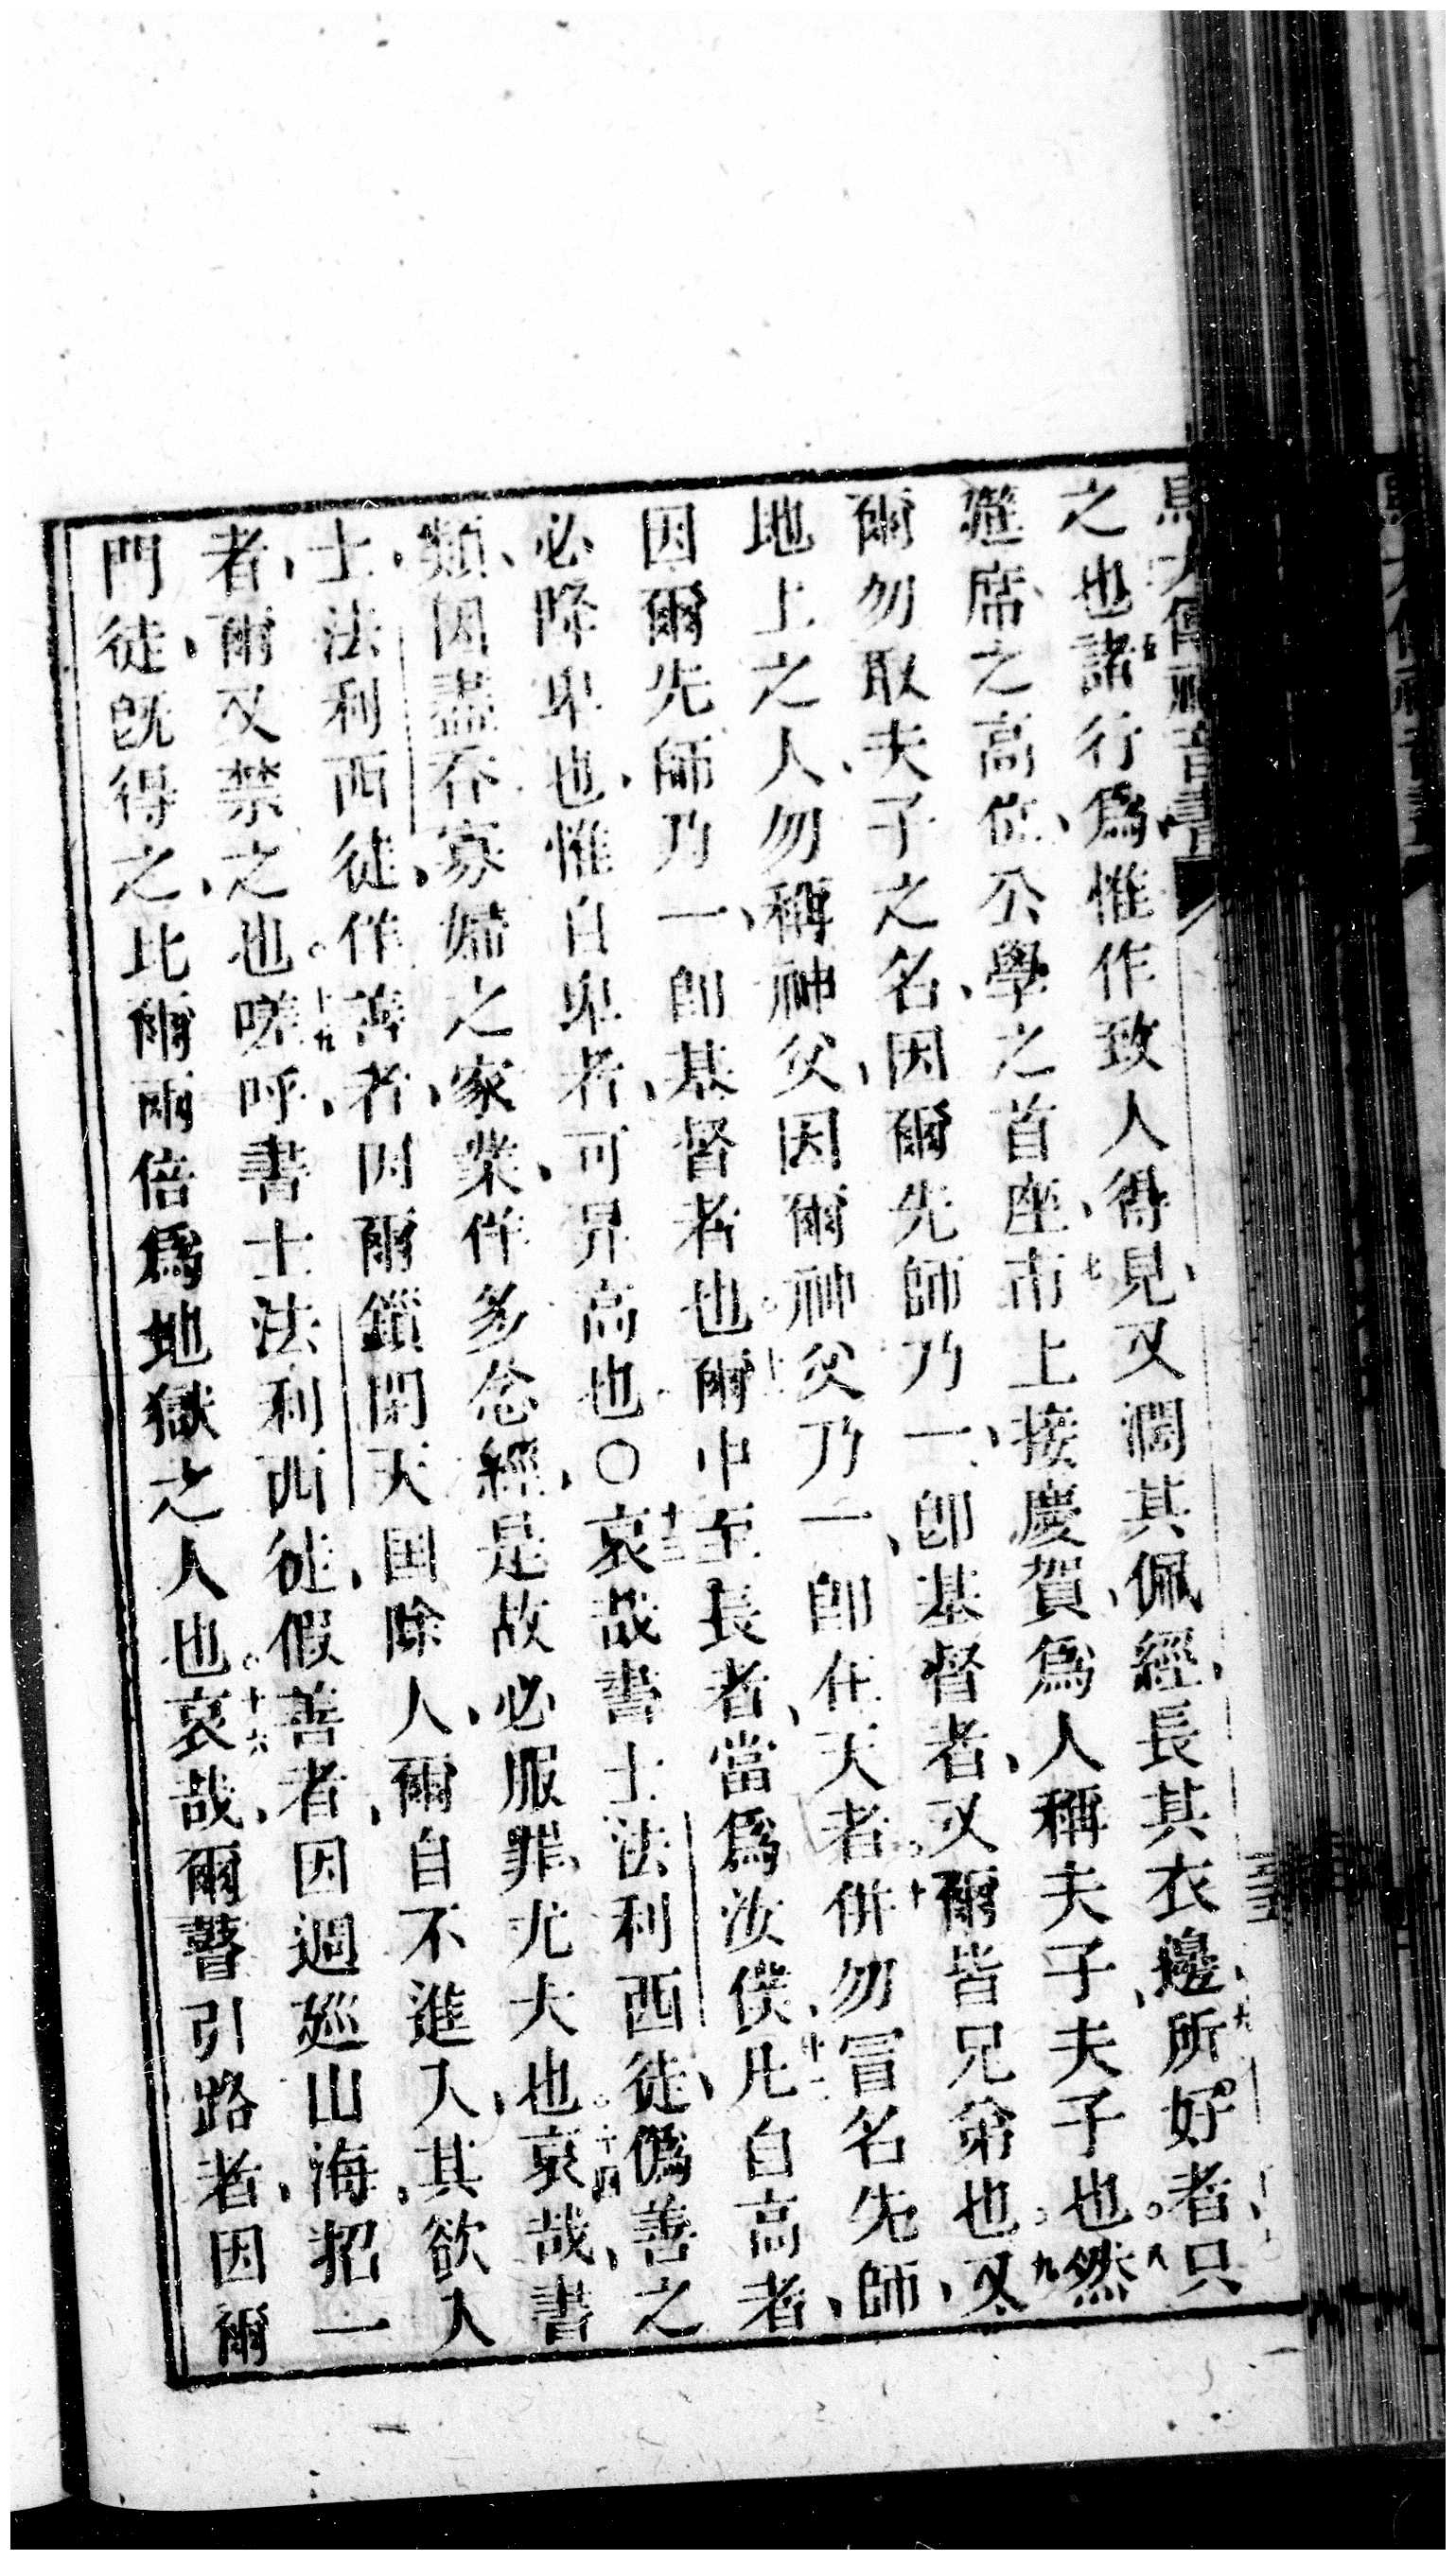 之也五諸行爲、惟作致人得見、又濶其佩經、長其衣邊、六所好者、只
筵席之高位、公學之首座、七市上接慶賀、爲人稱夫子夫子也。八然
爾勿取夫子之名、因爾先師乃一、卽基督者、又爾皆兄弟也。九又
地上之人、勿稱神父、因爾神父乃一、卽在天者。十併勿冒名先師、
因爾先師乃一、卽基督者也。十一爾中至長者、當爲汝僕、十二凡自高者、
必降卑也、惟自卑者、可昇高也。○十三哀哉書士法利西徒、僞善之
類、因盡吞寡婦之家業、佯多念經、是故必服罪尤大也。十四哀哉、書
士、法利西徒、佯善者、因爾鎖閉天国除人、爾自不進入、其欲入
者、爾又禁之也。十五嗟呼、書士法利西徒、假善者、因週廵山海、招一
門徒、旣得之、此爾兩倍爲地獄之人也。十六哀哉、爾瞽引路者、因爾